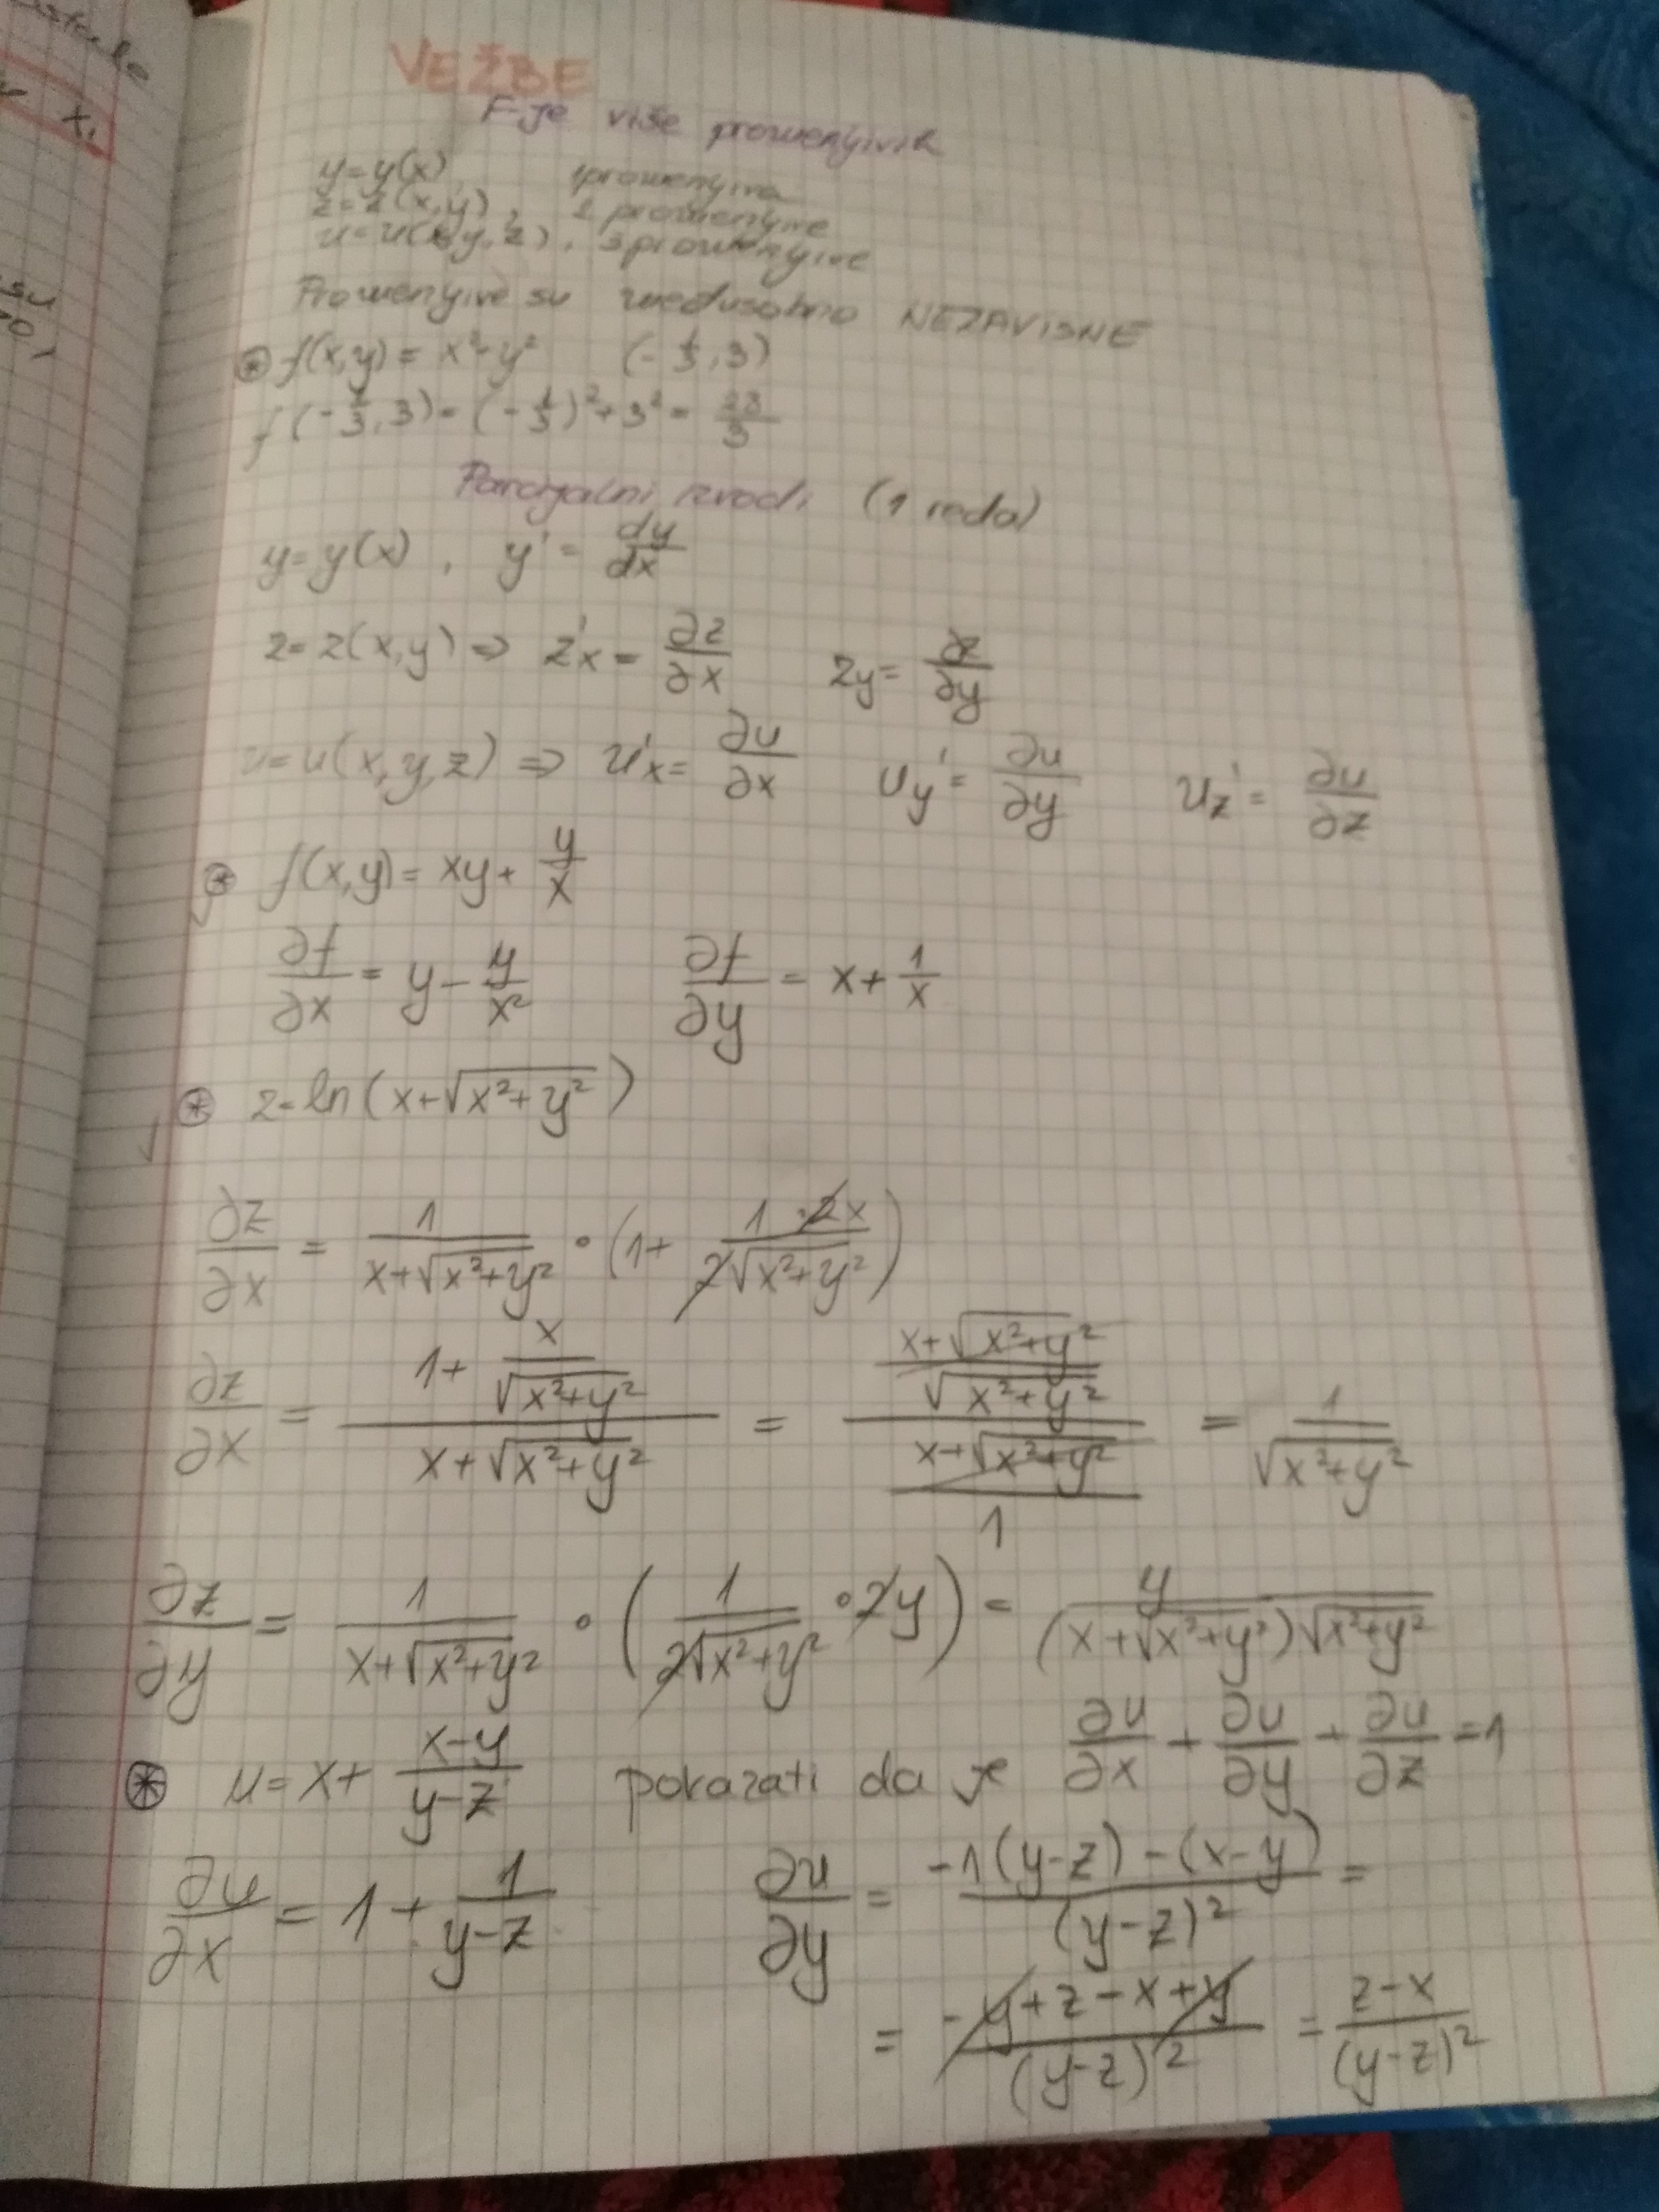 VEŽBE
F-je više promenjivih
y=y(x), 1 promenjiva
z=z(x,y), 2 promenjive
u=u(x,y,z), 3 promenjive
Promenjive su međusobno NEZAVISNE
⊛ f(x,y) = x²-y² (-1/3, 3)
f(-1/3, 3) = (-1/3)² + 3² =
Parcijalni izvodi (1 reda)
y=y(x), y' = dy/dx
z=z(x,y) ⇒ z'x = ∂z/∂x zy = ∂z/∂y
u=u(x,y,z) ⇒ u'x = ∂u/∂x uy' = ∂u/∂y uz' = ∂u/∂z
⊛ f(x,y) = xy + y/x
∂f/∂x = y - y/x² ∂f/∂y = x + 1/x
⊛ z=ln(x+√(x²+y²))
∂z/∂x = 1/(x+√(x²+y²)) • (1 + (1·2x)/(2√(x²+y²)))
∂z/∂x = (1 + x/√(x²+y²))/(x+√(x²+y²)) = ((x+√(x²+y²))/√(x²+y²))/((x+√(x²+y²))/1) = 1/√(x²+y²)
∂z/∂y = 1/(x+√(x²+y²)) • (1/(2√(x²+y²)) • 2y) = y/((x+√(x²+y²))√(x²+y²))
⊛ u = x + (x-y)/(y-z) pokazati da je ∂u/∂x + ∂u/∂y + ∂u/∂z = 1
∂u/∂x = 1 + 1/(y-z) ∂u/∂y = (-1(y-z) - (x-y))/(y-z)² =
= (-y+z-x+y)/(y-z)² = (z-x)/(y-z)²